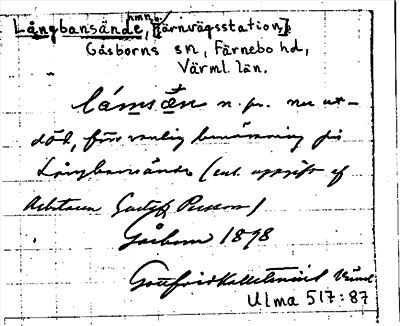 Långbansände, hmn, [järnvägsstation].
Gåsborns sn, Färnebo hd,
Värml. län.
lámsæn n. pr. nu ut-
död, förr vanlig benämning på
Långbansände (enl. uppgift af
Arbetaren Gustaf Persson)
Gåsborn 1898
Gottfrid Kallstenius
Ulma 517:87